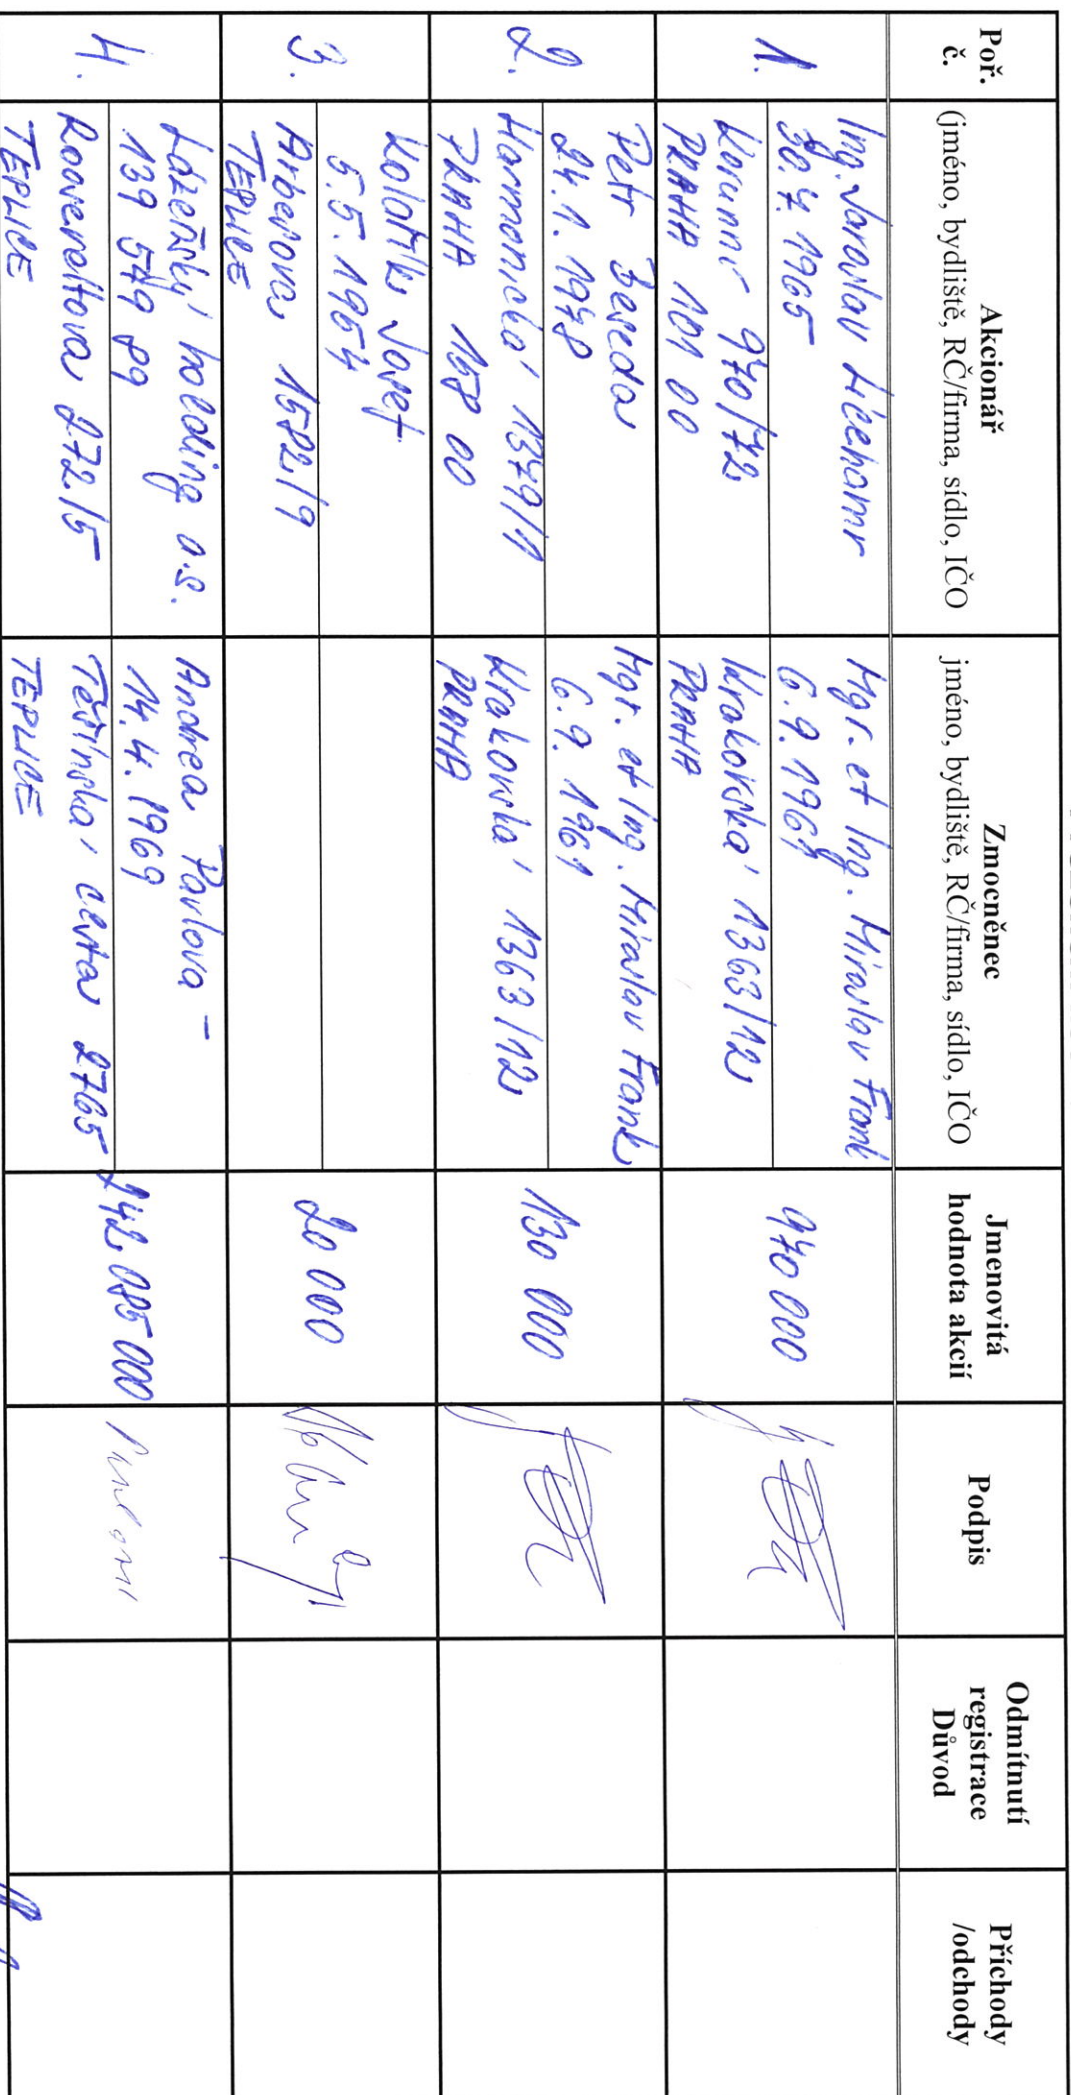 Poř.
č.
Akcionář
(jméno, bydliště, RČ/firma, sídlo, IČO
Zmocněnec
jméno, bydliště, RČ/firma, sídlo, IČO
Jmenovitá
hodnota akcií
Podpis
Odmítnutí
registrace
Důvod
Příchody
/odchody
1.
Ing. Jaroslav
30.7.1965
Korunní 970/72,
PRAHA 101 00
Mgr. et Ing. Miroslav Frank
6.9.1961
Krakovská 1363/12,
PRAHA
970 000
2.
Petr Beseda
24.1.1978
Harmanická 1379/1
PRAHA 158 00
Mgr. et Ing. Miroslav Frank
6.9.1961
Krakovská 1363/12,
PRAHA
130 000
3.
Josef
5.5.1954
Arbesova 1582/9
TEPLICE
20 000
4.
Lázeňský holding a.s.
139 579 89
Rooseveltova 272/5
TEPLICE
Andrea Pavlova -
14.4.1969
cesta 2765
TEPLICE
242 085 000